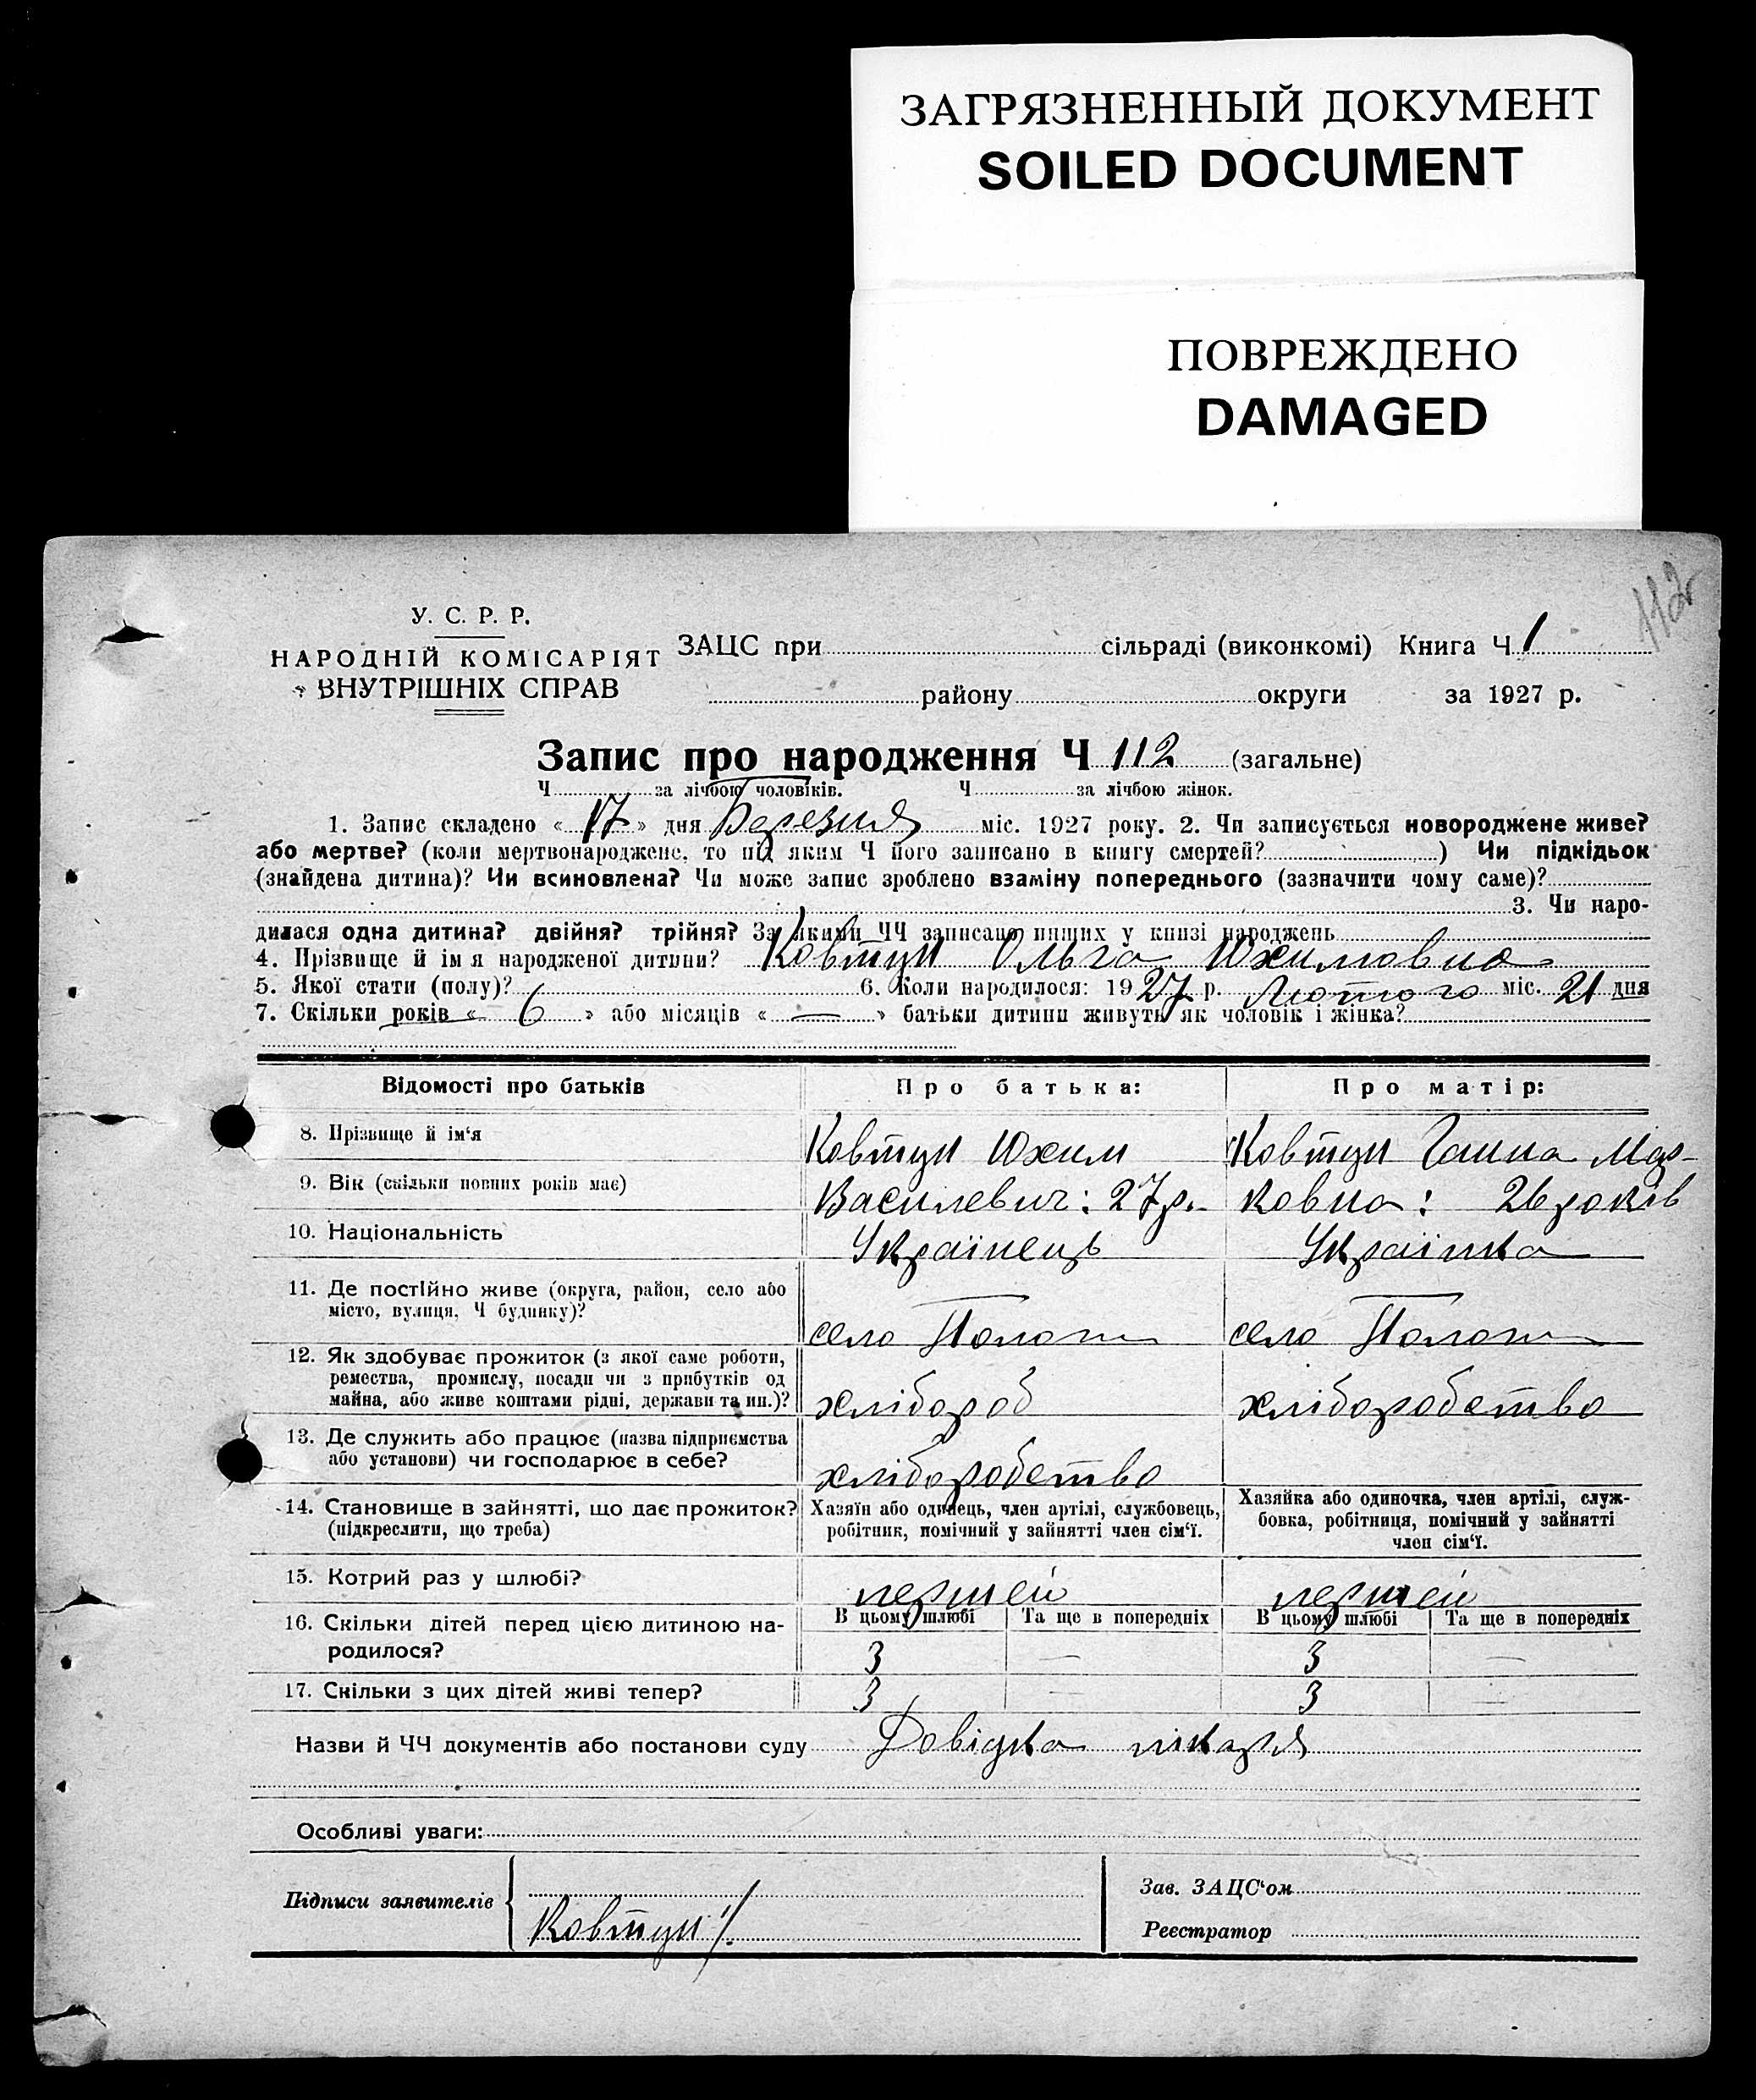 ЗАГРЯЗНЕННЫЙ ДОКУМЕНТ
SOILED DOCUMENT
ПОВРЕЖДЕНО
DAMAGED
112
У. С. Р. Р.
НАРОДНІЙ КОМІСАРІЯТ
ВНУТРІШНІХ СПРАВ
ЗАЦС при сільраді (виконкомі) Книга Ч 1
району округи за 1927 р.
Запис про народження Ч 112 (загальне)
Ч за лічбою чоловіків. Ч за лічбою жінок.
1. Запис складено « 17 » дня Березня міс. 1927 року. 2. Чи записується новороджене живе?
або мертве? (коли мертвонароджене, то під яким Ч його записано в книгу смертей? ) Чи підкідьок
(знайдена дитина)? Чи всиновлена? Чи може запис зроблено взаміну попереднього (зазначити чому саме)?
3. Чи наро-
дилася одна дитина? двійня? трійня? За якими ЧЧ записано инших у книзі народжень
4. Прізвище й ім я народженої дитини? Ковтун Ольга Юхимовна
5. Якої стати (полу)? 6. Коли народилося: 1927 р. Лютого міс. 21 дня
7. Скільки років « 6 » або місяців « — » батьки дитини живуть як чоловік і жінка?
Відомості про батьків Про батька: Про матір:
8. Прізвище й ім'я Ковтун Юхим Ковтун Ганна Мар-
9. Вік (скільки повних років має) Василевич: 27 р. ковна: 26 років
10. Національність Українець Українка
11. Де постійно живе (округа, район, село або
місто, вулиця, Ч будинку)? село село
12. Як здобуває прожиток (з якої саме роботи,
ремества, промислу, посади чи з прибутків од
майна, або живе коштами рідні, держави та ин.)? хлібороб хліборобство
13. Де служить або працює (назва підприємства
або установи) чи господарює в себе? хліборобство
14. Становище в зайнятті, що дає прожиток? Хазяїн або одинець, член артілі, службовець, Хазяйка або одиночка, член артілі, служ-
(підкреслити, що треба) робітник, помічний у зайнятті член сім'ї. бовка, робітниця, помічний у зайнятті
член сім'ї.
15. Котрий раз у шлюбі? першей першей
16. Скільки дітей перед цією дитиною на- В цьому шлюбі Та ще в попередніх В цьому шлюбі Та ще в попередніх
родилося? 3 — 3 —
17. Скільки з цих дітей живі тепер? 3 — 3 —
Назви й ЧЧ документів або постанови суду Довідка лікаря
Особливі уваги:
Підписи заявителів Ковтун Зав. ЗАЦС'ом
Реєстратор